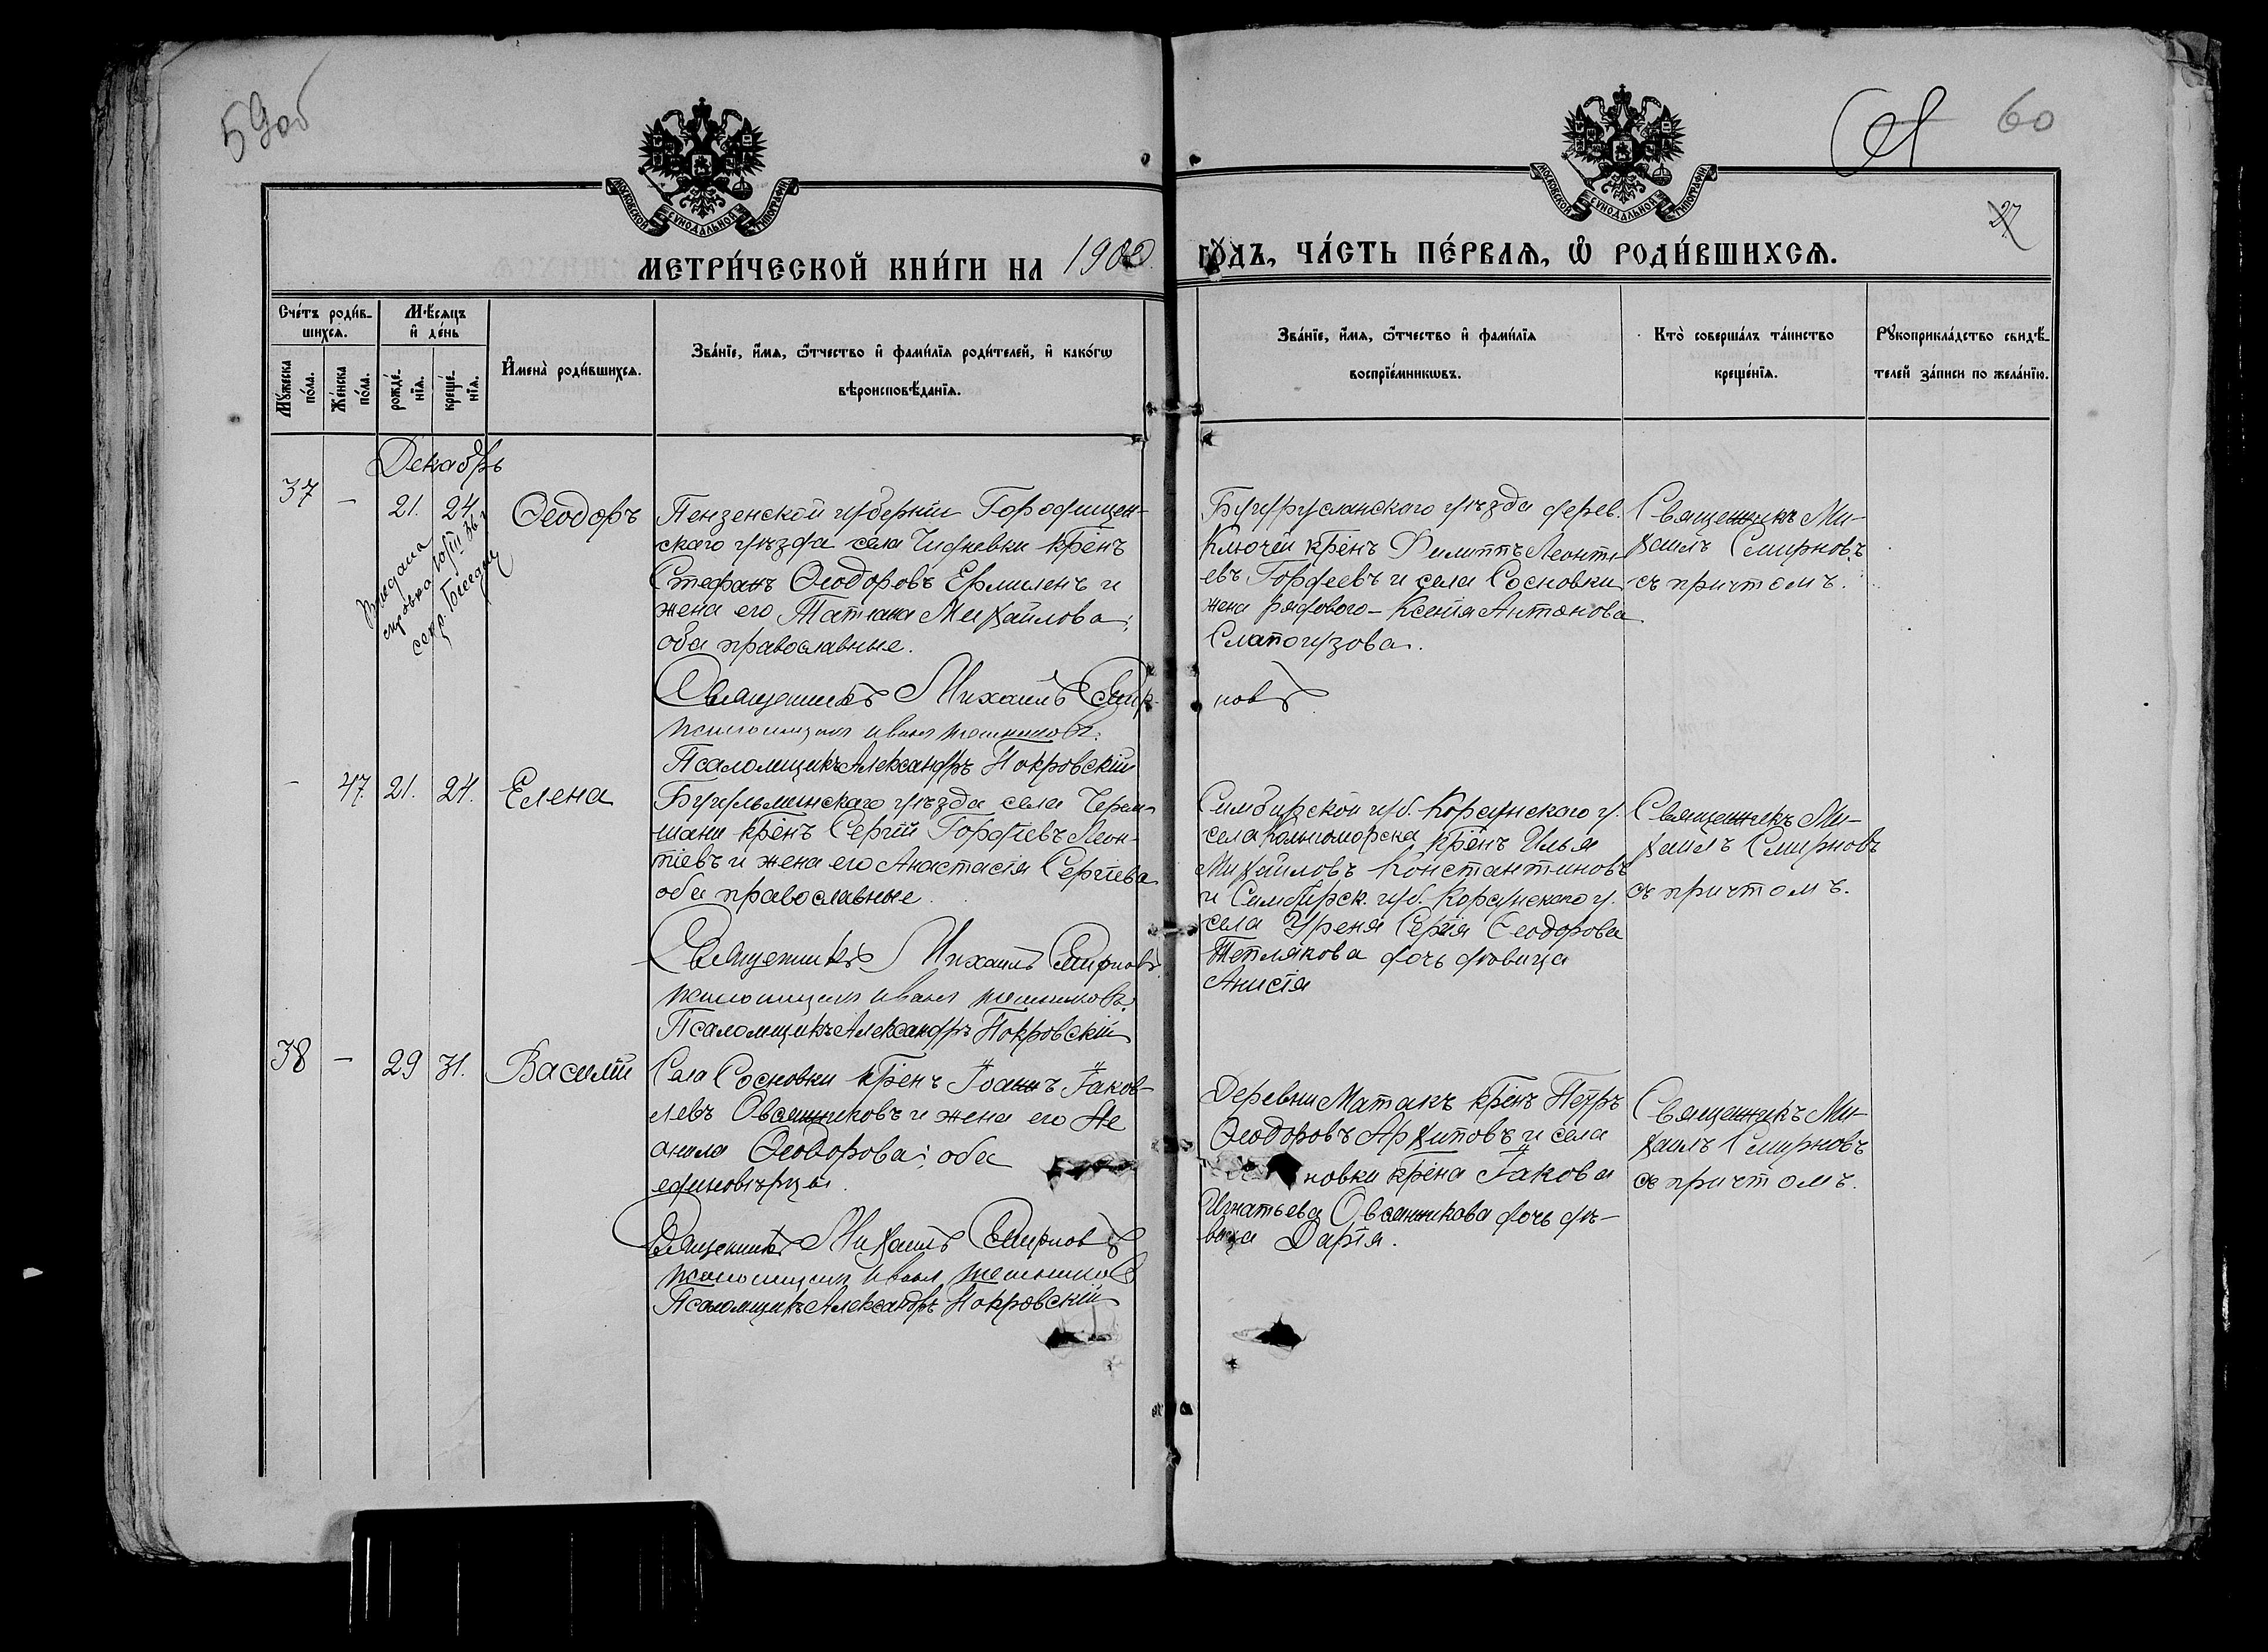 59об
60
27
МОСКОВСКОЙ СѴНОДАЛЬНОЙ ТИПОГРАФІИ
МОСКОВСКОЙ СѴНОДАЛЬНОЙ ТИПОГРАФІИ
МЕТРИ́ЧЕСКОЙ КНИ́ГИ НА 1902
ГО́ДЪ, ЧА́СТЬ ПЕ́РВАѦ, Ѽ РОДИ́ВШИХСѦ.
Сче́тъ роди́в-
шихсѧ.
Мѣ́сяцъ
и҆ де́нь
Мꙋ́жеска
по́ла.
Же́нска
по́ла.
рожде́-
нїѧ.
креще́-
нїѧ.
И҆мена̀ роди́вшихсѧ.
Зва́нїе, и҆́мѧ, ѻ҆́тчество и҆ фами́лїѧ роди́телей, и҆ како́гѡ
вѣроисповѣ́данїѧ.
Зва́нїе, и҆́мѧ, ѻ҆́тчество и҆ фами́лїѧ
воспрїе́мникѡвъ.
Кто̀ соверша́лъ та́инство
креще́нїѧ.
Рꙋкоприкла́дство свидѣ́-
телей за́писи по жела́нїю.
Декабрь
37 – 21. 24. Ѳеодоръ
Выдана
справка 10/III 36 г
секр.
Пензенской губерніи Городищен-
скаго уѣзда села Чирневки крѣнъ
Стефанъ Ѳеодоровъ Ермиленъ и
жена его Татіана Михайлова,
оба православные.
Священникъ Михаилъ Смир-
новъ
Псаломщикъ Александръ Покровскій
Бугурусланскаго уѣзда дерев.
Ключей крѣнъ Филиппъ Леонті-
евъ Гордеевъ и села Сосновки
жена рядового – Ксенія Антонова
Слапогузова.
Священникъ Ми-
хаилъ Смирновъ
съ причтомъ.
– 47. 21. 24. Елена
Бугульминскаго уѣзда села Черем-
шани крѣнъ Сергій Гордіевъ Леон-
тіевъ и жена его Анастасія Сергіева
оба православные.
Священникъ Михаилъ Смирновъ
Псаломщикъ Александръ Покровскій
Симбирской губ. Корсунскаго у.
села крѣнъ Илья
Михаиловъ Константиновъ
и Симбирск. губ. Корсунскаго у.
села Уреня Сергія Ѳеодорова
Теплякова дочь дѣвица
Анисія
Священникъ Ми-
хаилъ Смирновъ
съ причтомъ.
38 – 29 31. Василій
Села Сосновки крѣнъ Іоаннъ Іаков-
левъ Овсянниковъ и жена его Не
онила Ѳеодорова; оба
единовѣрцы.
Священникъ Михаилъ Смирновъ
Псаломщикъ Александръ Покровскій
Деревни Матакъ крѣнъ Петръ
Ѳеодоровъ Архиповъ и села
новки крѣна Іакова
Игнатьева Овсянникова дочь дѣ-
вица Дарія.
Священникъ Ми-
хаилъ Смирновъ
съ причтомъ.